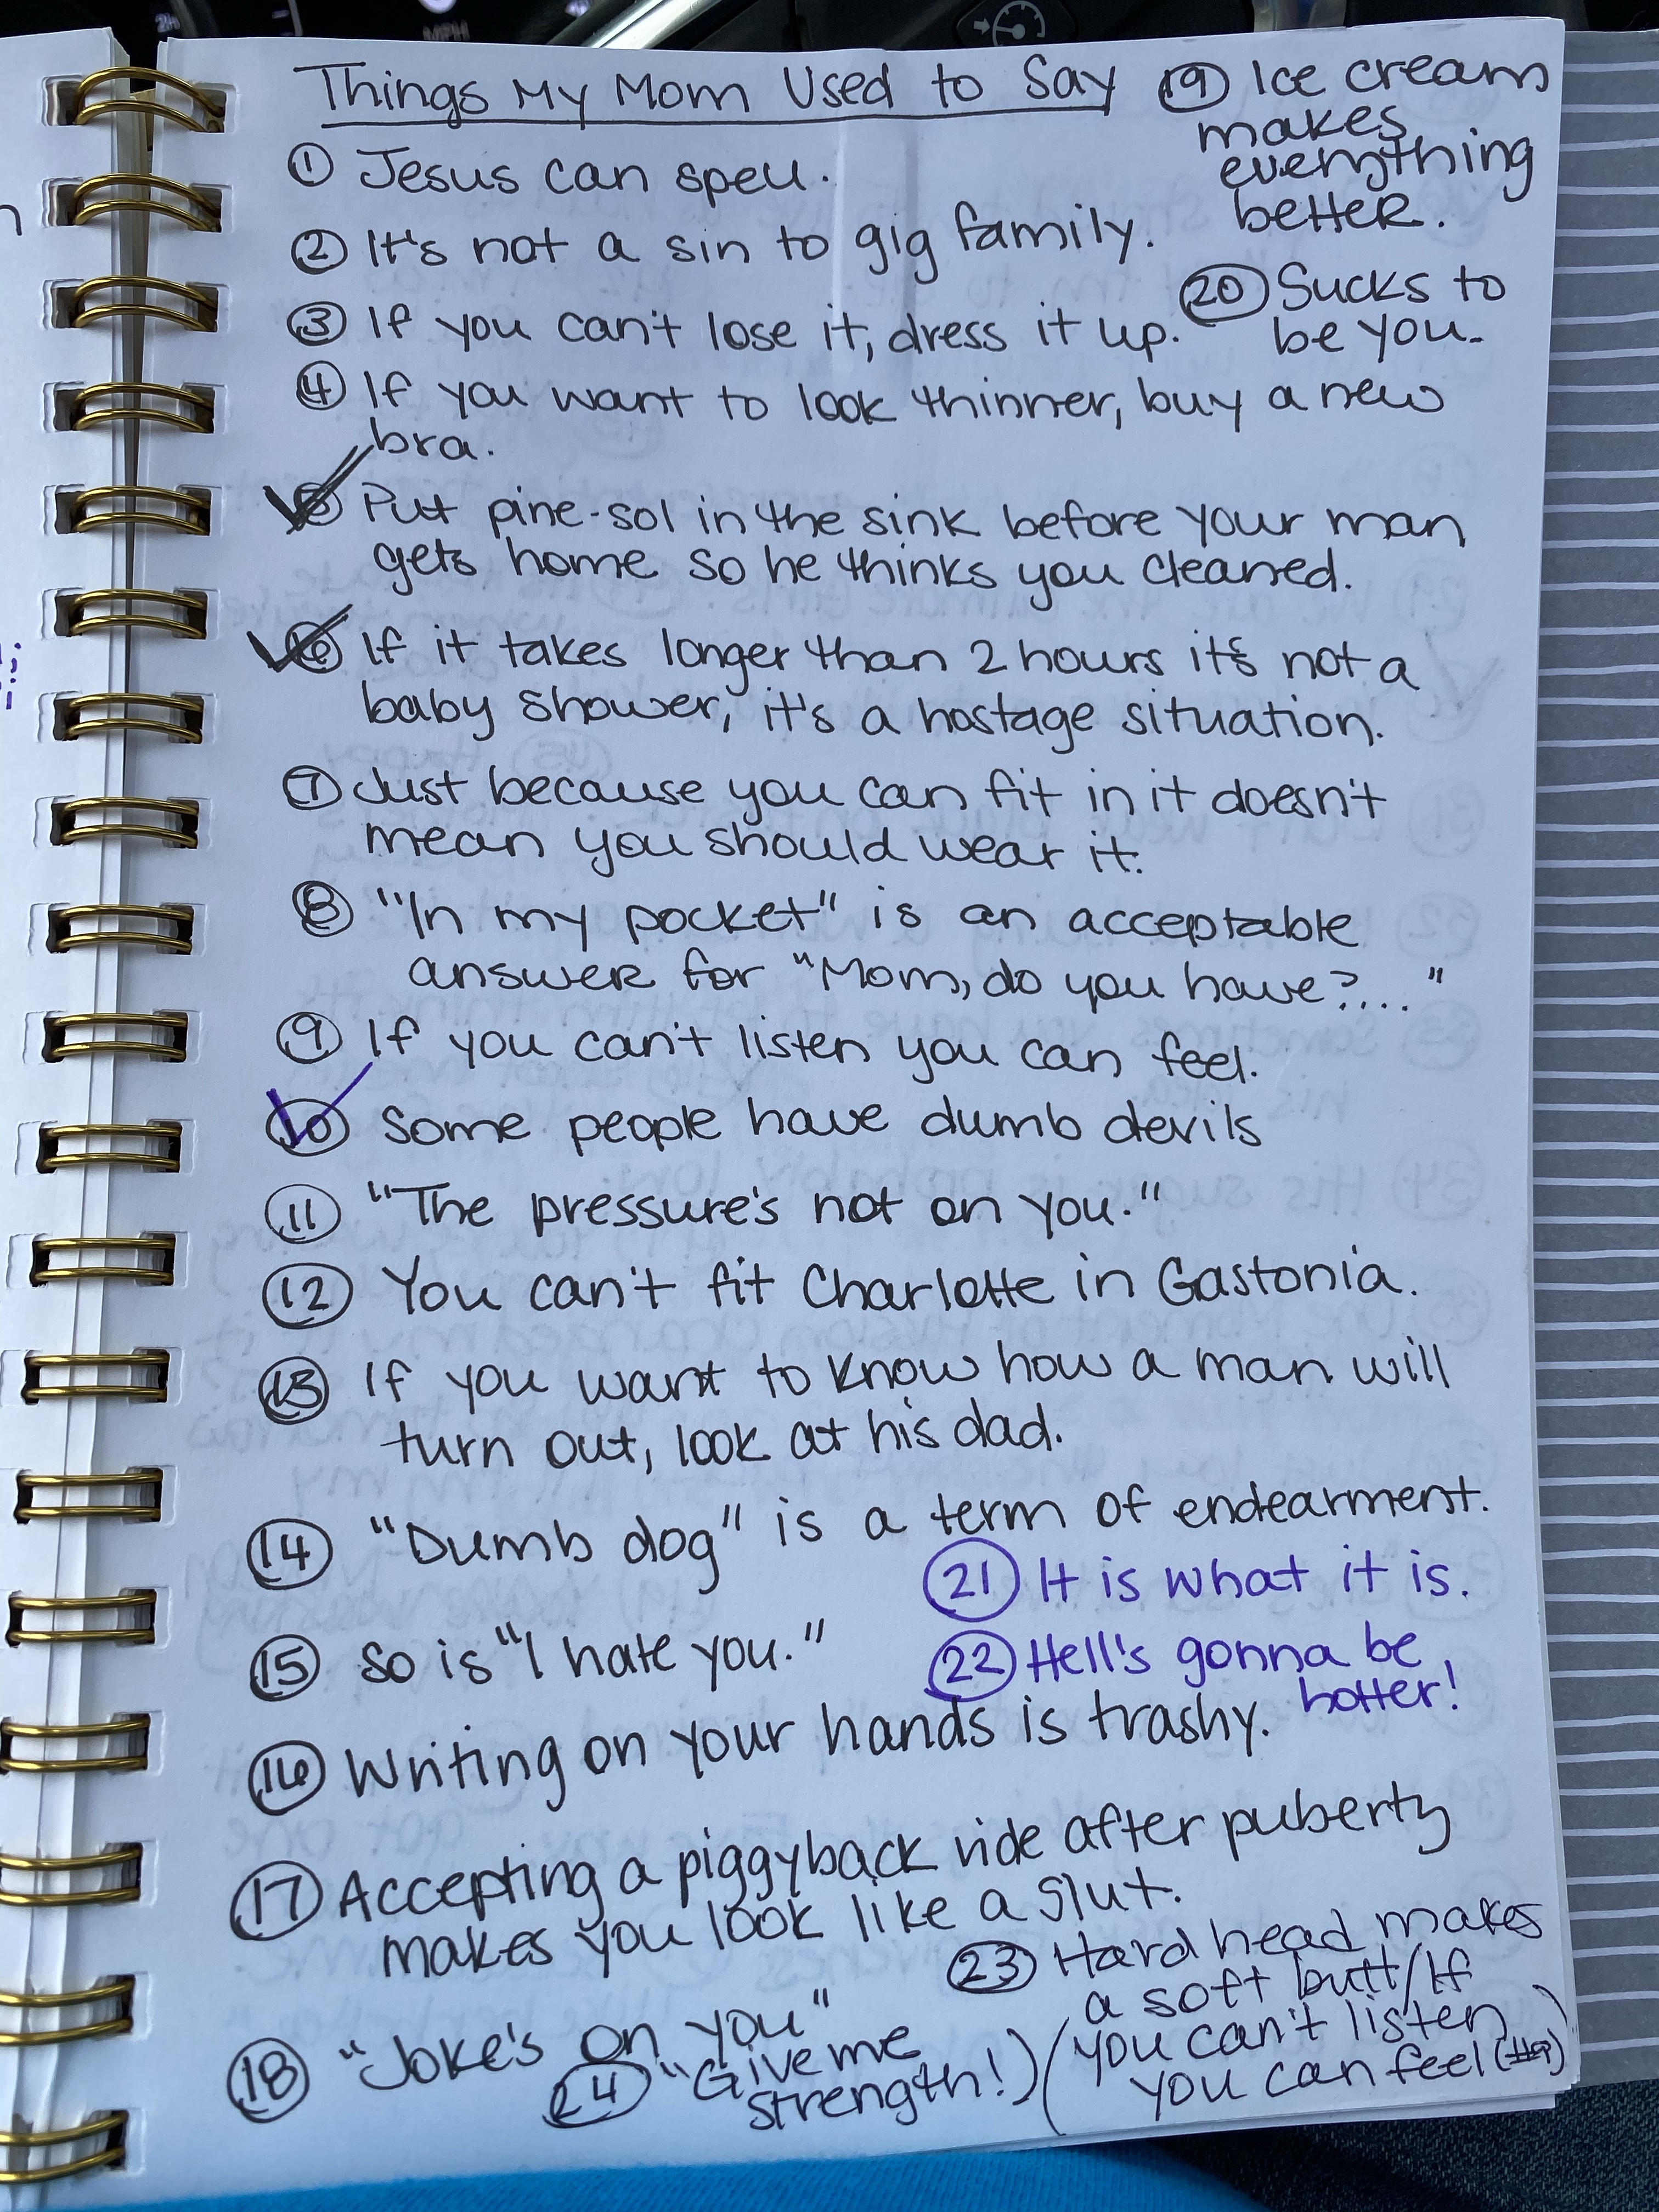 Things My Mom Used to Say
① Jesus can spell.
② It's not a sin to gig family.
③ If you can't lose it, dress it up.
④ If you want to look thinner, buy a new
bra.
⑤ Put pine-sol in the sink before your man
gets home so he thinks you cleaned.
⑥ If it takes longer than 2 hours it's not a
baby shower, it's a hostage situation.
⑦ Just because you can fit in it doesn't
mean you should wear it.
⑧ "In my pocket" is an acceptable
answer for "Mom, do you have?..."
⑨ If you can't listen you can feel.
⑩ Some people have dumb devils
⑪ "The pressure's not on you."
⑫ You can't fit Charlotte in Gastonia.
⑬ If you want to know how a man will
turn out, look at his dad.
⑭ "Dumb dog" is a term of endearment.
⑮ So is "I hate you."
⑯ Writing on your hands is trashy.
⑰ Accepting a piggyback ride after puberty
makes you look like a slut.
⑱ "Joke's on you"
⑲ Ice cream
makes
everything
better.
⑳ Sucks to
be you.
㉑ It is what it is.
㉒ Hell's gonna be
hotter!
㉓ Hard head makes
a soft butt/If
(you can't listen)
you can feel (#9)
㉔ "Give me
strength!)
MPH